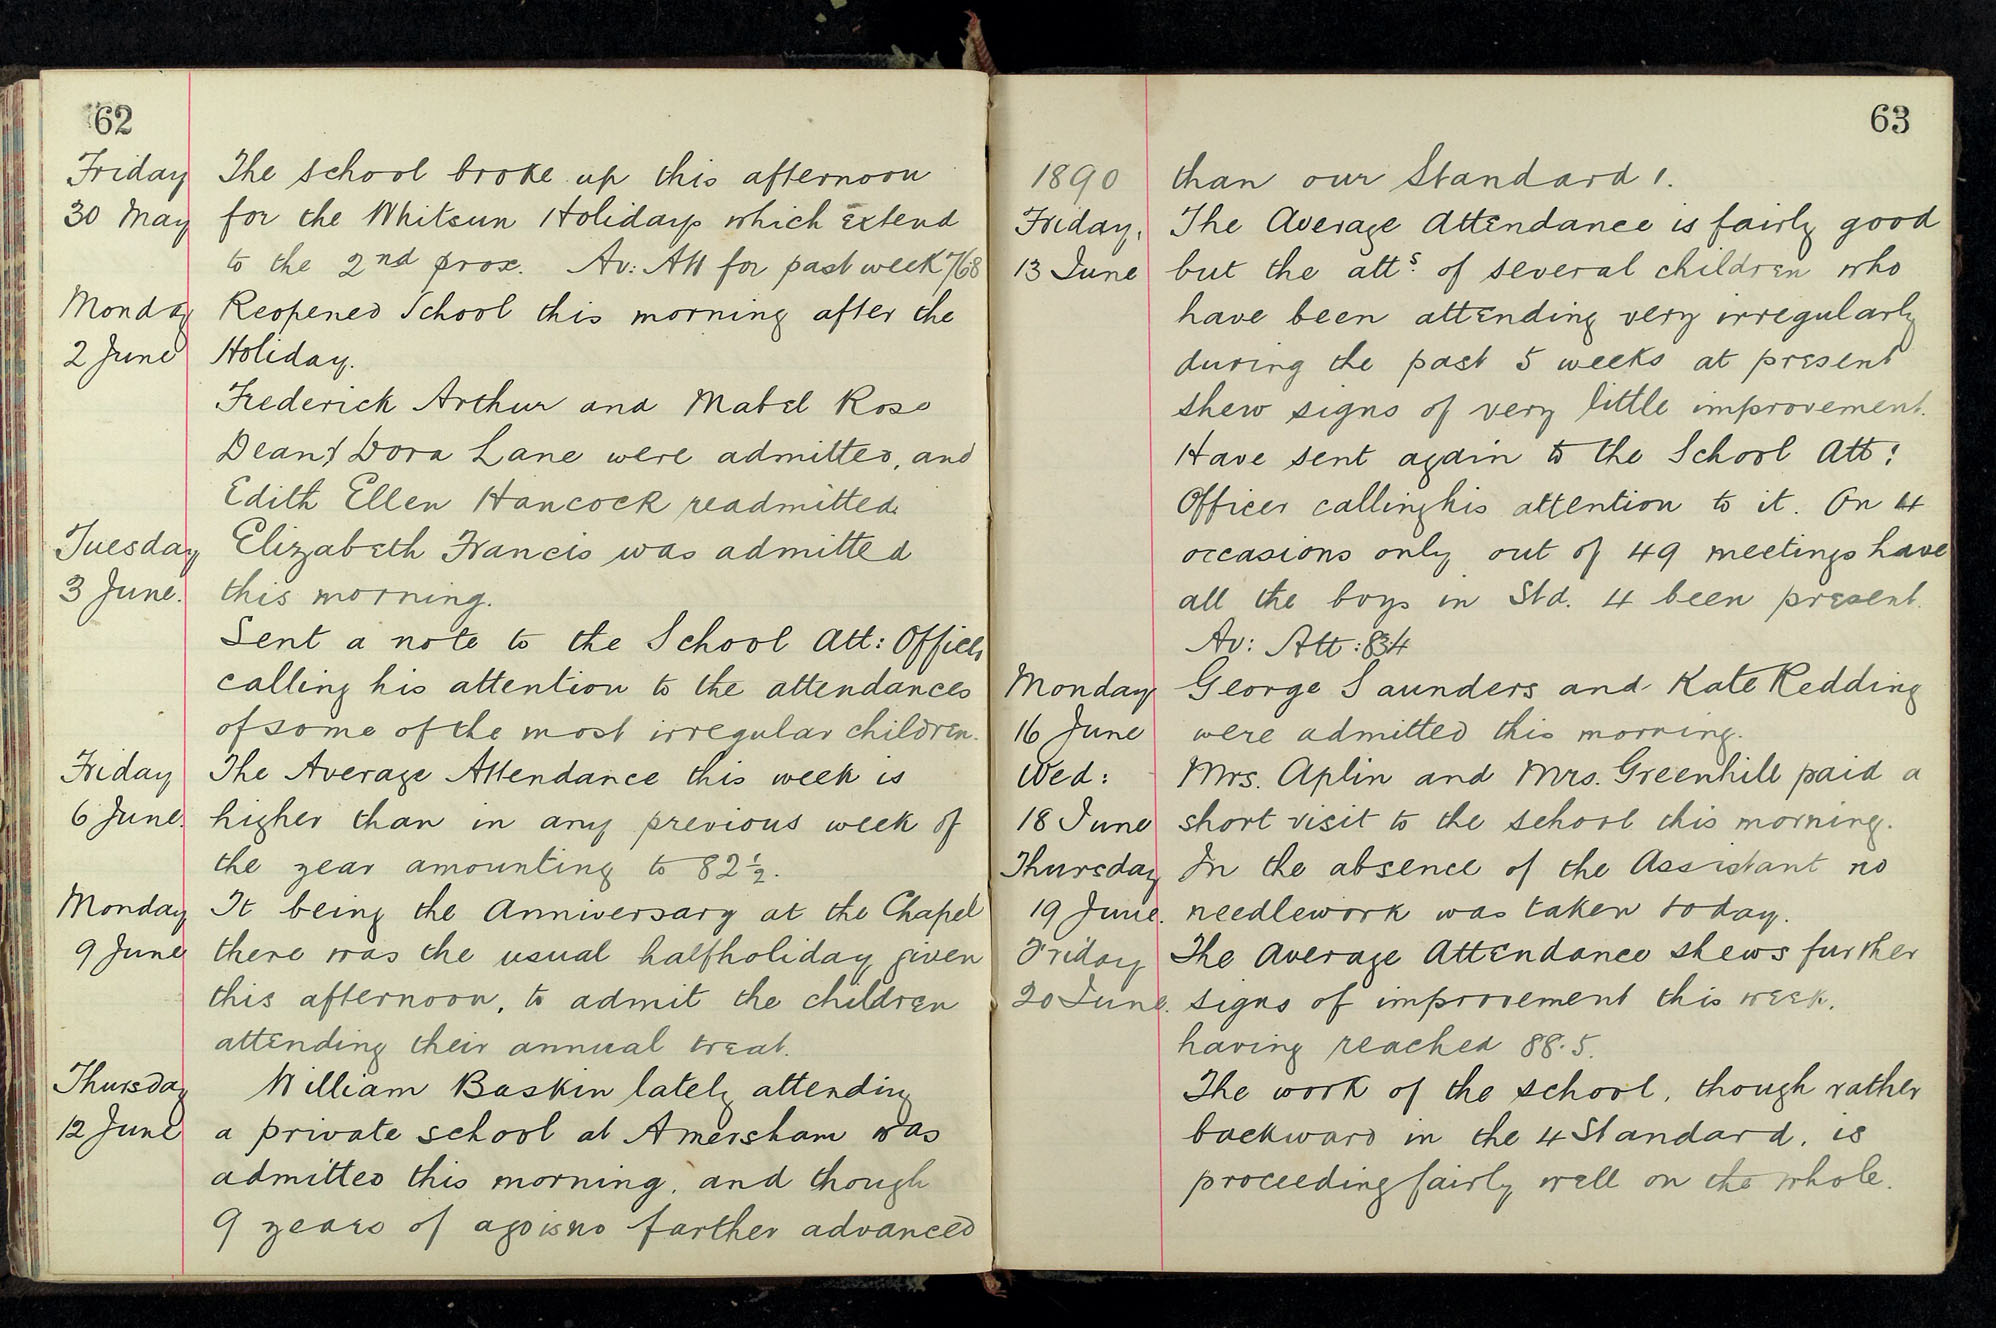 62
Friday The school broke up this afternoon
30 May for the Whitsun Holidays which extend
to the 2nd prox. Av: Att for past week 76.8
Monday Reopened School this morning after the
2 June Holiday.
Frederick Arthur and Mabel Rose
Dean & Dora Lane were admitted, and
Edith Ellen Hancock readmitted.
Tuesday Elizabeth Francis was admitted
3 June. this morning.
Sent a note to the School Att: Officer
calling his attention to the attendances
of some of the most irregular children.
Friday The Average Attendance this week is
6 June. higher than in any previous week of
the year amounting to 82 ½.
Monday It being the Anniversary at the Chapel
9 June there was the usual halfholiday given
this afternoon, to admit the children
attending their annual treat.
Thursday William Baskin lately attending
12 June a private school at Amersham was
admitted this morning, and though
9 years of age is no farther advanced
63
1890 than our Standard 1.
Friday, The Average Attendance is fairly good
13 June but the atts: of several children who
have been attending very irregularly
during the past 5 weeks at present
shew signs of very little improvement.
Have sent again to the School Att:
Officer calling his attention to it. On 4
occasions only out of 49 meetings have
all the boys in Std. 4 been present.
Av: Att: 83.4
Monday George Saunders and Kate Redding
16 June were admitted this morning.
Wed: Mrs. Aplin and Mrs. Greenhill paid a
18 June short visit to the school this morning.
Thursday In the absence of the Assistant no
19 June. needlework was taken today.
Friday The Average Attendance shews further
20 June. signs of improvement this week,
having reached 88.5.
The work of the school, though rather
backward in the 4 Standard, is
proceeding fairly well on the whole.